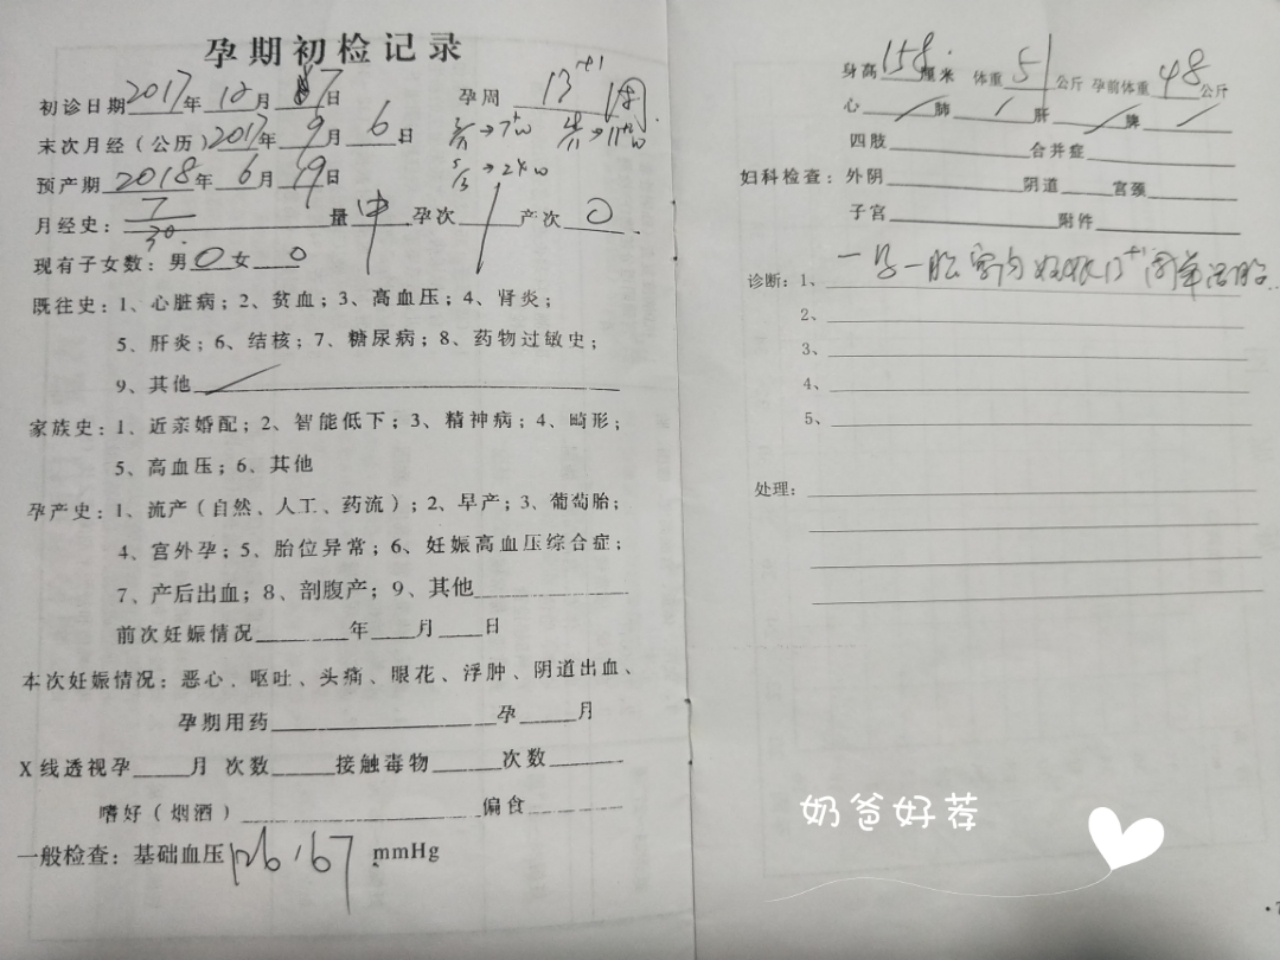 孕期初检记录
初诊日期2017年12月7日 孕周 13+1周
末次月经（公历）2017年9月6日 →7+w →11+w
预产期2018年6月19日 →24w
月经史：7/30. 量中孕次1产次0.
现有子女数：男0女0
既往史：1、心脏病；2、贫血；3、高血压；4、肾炎；
5、肝炎；6、结核；7、糖尿病；8、药物过敏史；
9、其他
家族史：1、近亲婚配；2、智能低下；3、精神病；4、畸形；
5、高血压；6、其他
孕产史：1、流产（自然、人工、药流）；2、早产；3、葡萄胎；
4、宫外孕；5、胎位异常；6、妊娠高血压综合症；
7、产后出血；8、剖腹产；9、其他
前次妊娠情况 年 月 日
本次妊娠情况：恶心、呕吐、头痛、眼花、浮肿、阴道出血、
孕期用药 孕 月
X线透视孕 月 次数 接触毒物 次数
嗜好（烟酒） 偏食
一般检查：基础血压126/67 mmHg
身高158.厘米 体重51公斤 孕前体重48公斤
心/肺/肝/脾/
四肢 合并症
妇科检查：外阴 阴道 宫颈
子宫 附件
诊断：1、一孕一胎宫内妊娠13+1周单活胎
2、
3、
4、
5、
处理：
奶爸好荐